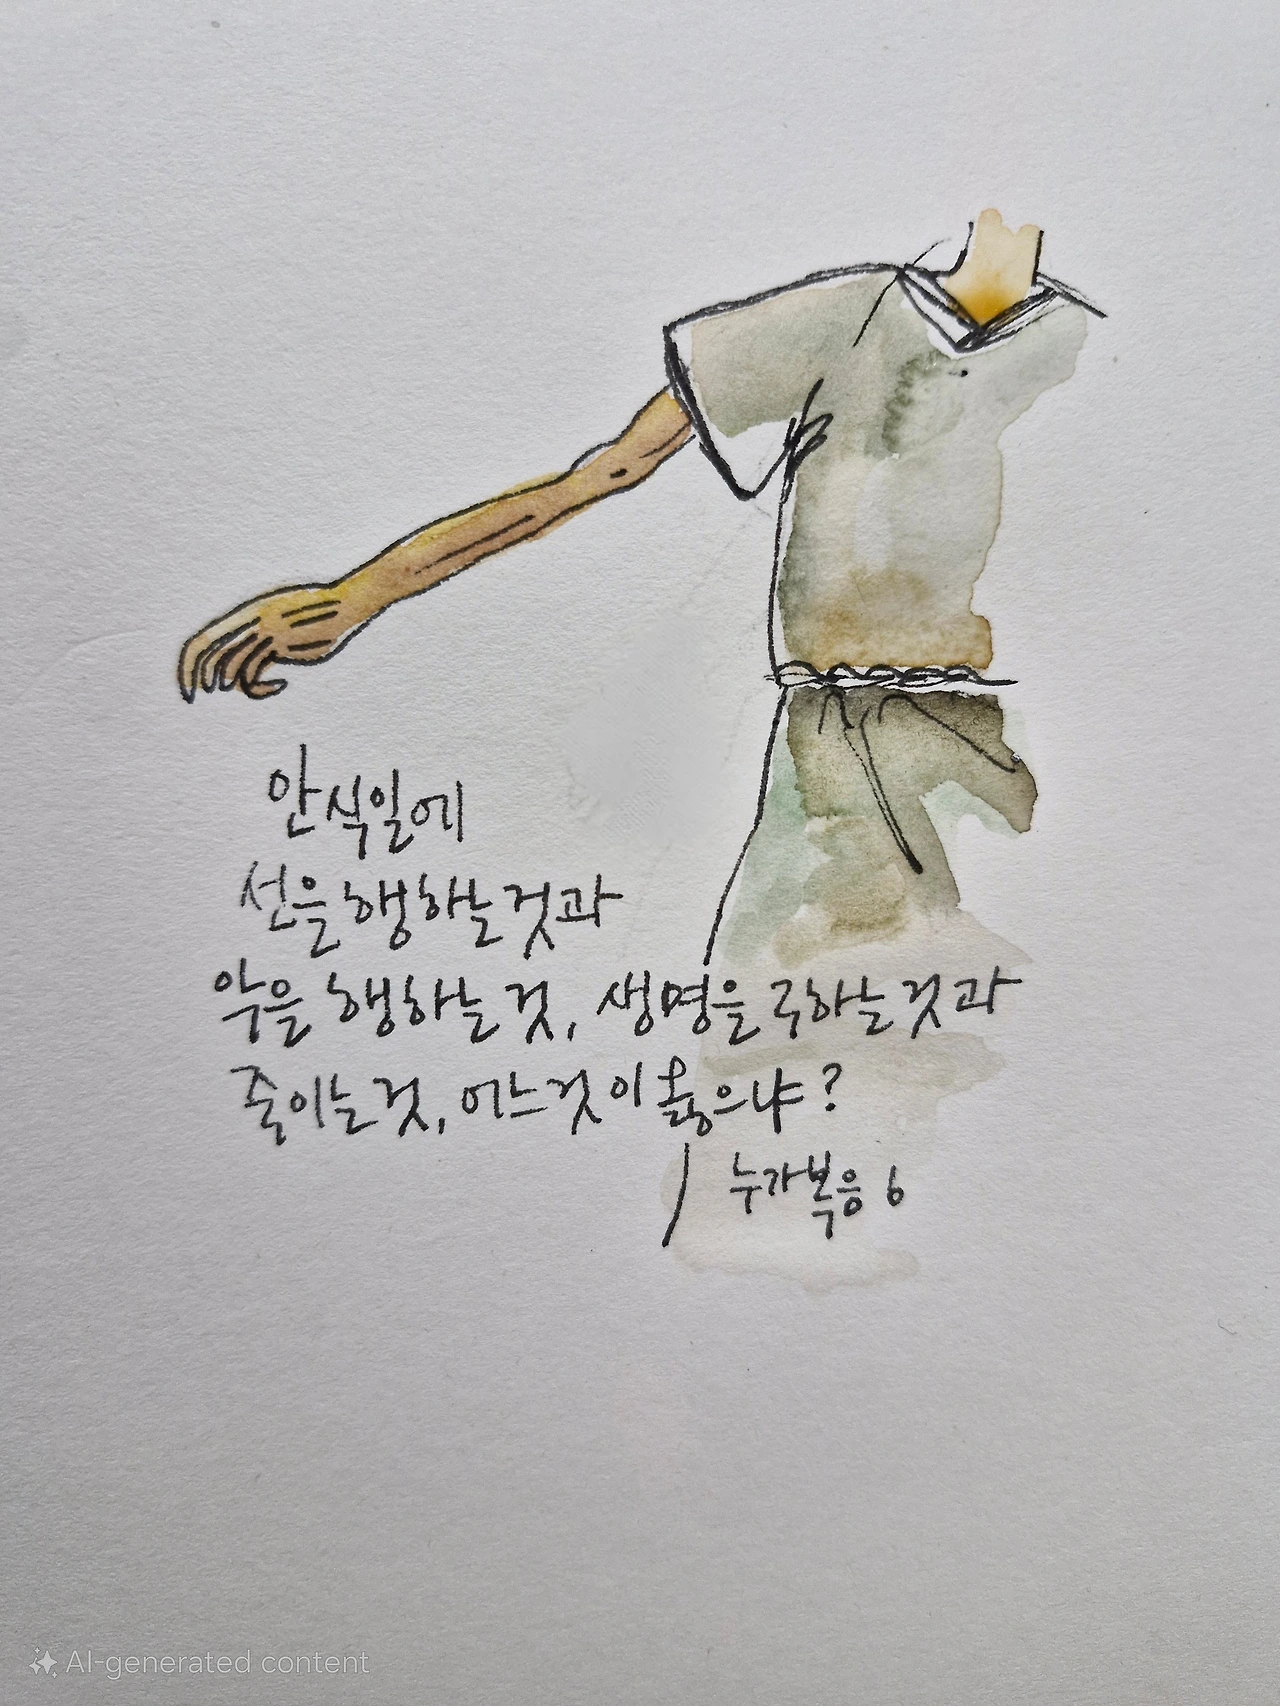 안식일에
선을 행하는 것과
악을 행하는 것, 생명을 구하는 것과
죽이는 것, 어느 것이 옳으냐?
누가복음 6
AI-generated content